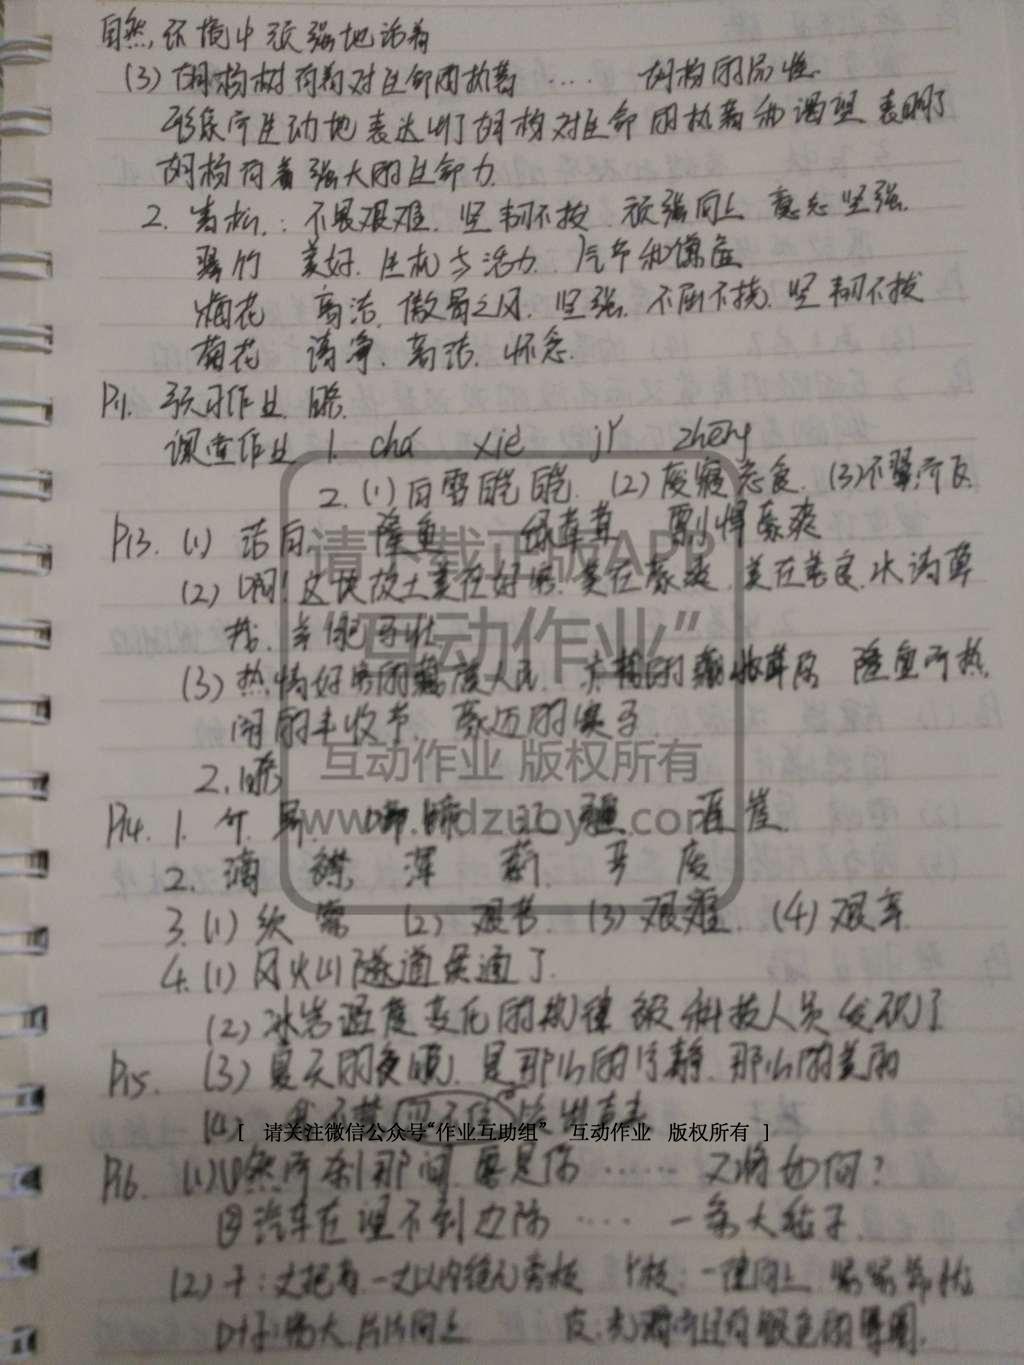 自然环境中顽强地活着
(3) 胡杨树有着对生命的执着 …… 胡杨的属性.
形象而生动地表达出了胡杨对生命的执着和渴望 表明了
胡杨有着强大的生命力.
2. 青松: 不畏艰难. 坚韧不拔. 顽强向上 意志坚强.
翠竹 美好. 生机与活力. 气节和谦虚
梅花 高洁. 傲骨之风. 坚强. 不屈不挠. 坚韧不拔
菊花 清净. 高洁. 怀念.
P11. 预习作业 略.
课堂作业 1. chá xié jì zhēng
2. (1) 白雪皑皑. (2) 废寝忘食. (3) 不翼而飞
P13. (1) 洁白 隆重 绿茸茸 剽悍豪爽
(2) 啊! 这块故土美在好客. 美在豪爽. 美在善良. 水清草
羊肥马壮
(3) 热情好客的 人民. 隆重而热
闹的丰收节. 豪迈的
2. 略
P14. 1. 涯 崖
2. 漓 襟 薄 薪
3. (1) (2) 艰苦 (3) 艰难. (4) 艰辛
4. (1) 风火山隧道贯通了.
(2) 冰岩温度变化的规律被科技人员发现了
P15. (3) 夏天的夜晚. 是那么的宁静. 那么的美丽
(4)
P16. (1) ① 然而刹那间. 要是你 …… 又将如何?
② 汽车在望不到边际 …… 一条大毡子.
(2) 干: 丈把高. 一丈以内绝无旁枝 枝: 一律向上. 紧紧靠拢
叶子: 宽大. 片片向上 皮: 光滑而且有银色的晕圈.
请下载正版APP
“互动作业”
互动作业 版权所有
[ 请关注微信公众号“作业互助组” 互动作业 版权所有 ]